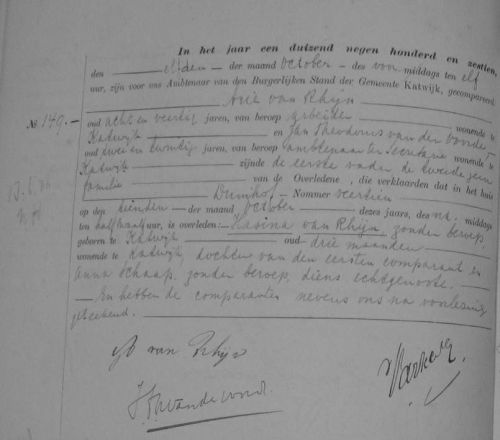 In het jaar een duizend negen honderd en zestien,
den elfden der maand October des voor middags ten elf
uur, zijn voor ons Ambtenaar van den Burgerlijken Stand der Gemeente Katwijk, gecompareerd
Arie van Rhijn
No. 149.-
oud acht en veertig jaren, van beroep arbeider wonende te
Katwijk en Jan Theodorus van der
oud twee en twintig jaren, van beroep ambtenaar ter secretarie wonende te
Katwijk zijnde de eerste vader de tweede geen
familie van de Overledene, die verklaarden dat in het huis
Nommer veertien
op den tienden der maand October dezes jaars, des na middags
ten half uur, is overleden: van Rhijn, zonder beroep,
geboren te Katwijk oud drie maanden
wonende te Katwijk, dochter van den eersten comparant en
Anna Schaap, zonder beroep, diens echtgenoote.
En hebben de comparanten nevens ons na voorlezing
geteekend.
van Rhijn